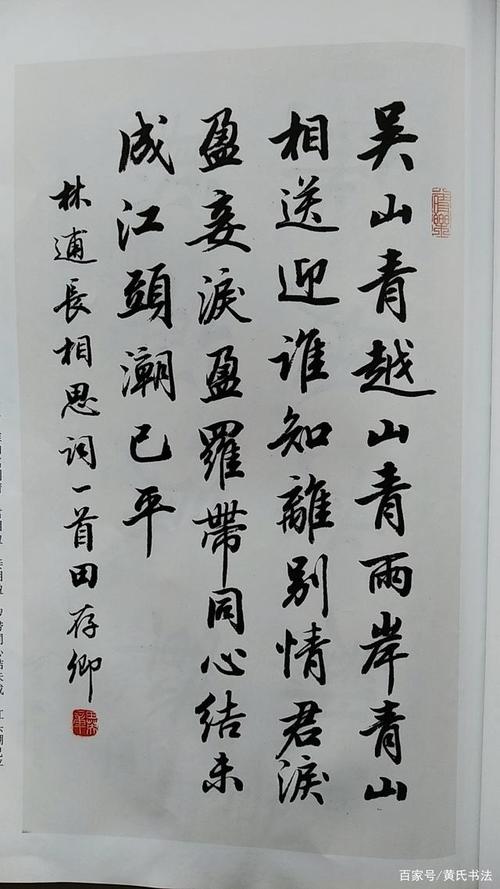 吴山青越山青兩岸青山
相送迎谁知離别情君淚
盈妾淚盈羅帶同心结未
成江頭潮已平
林逋長相思词一首田存卿
百家号/黄氏书法